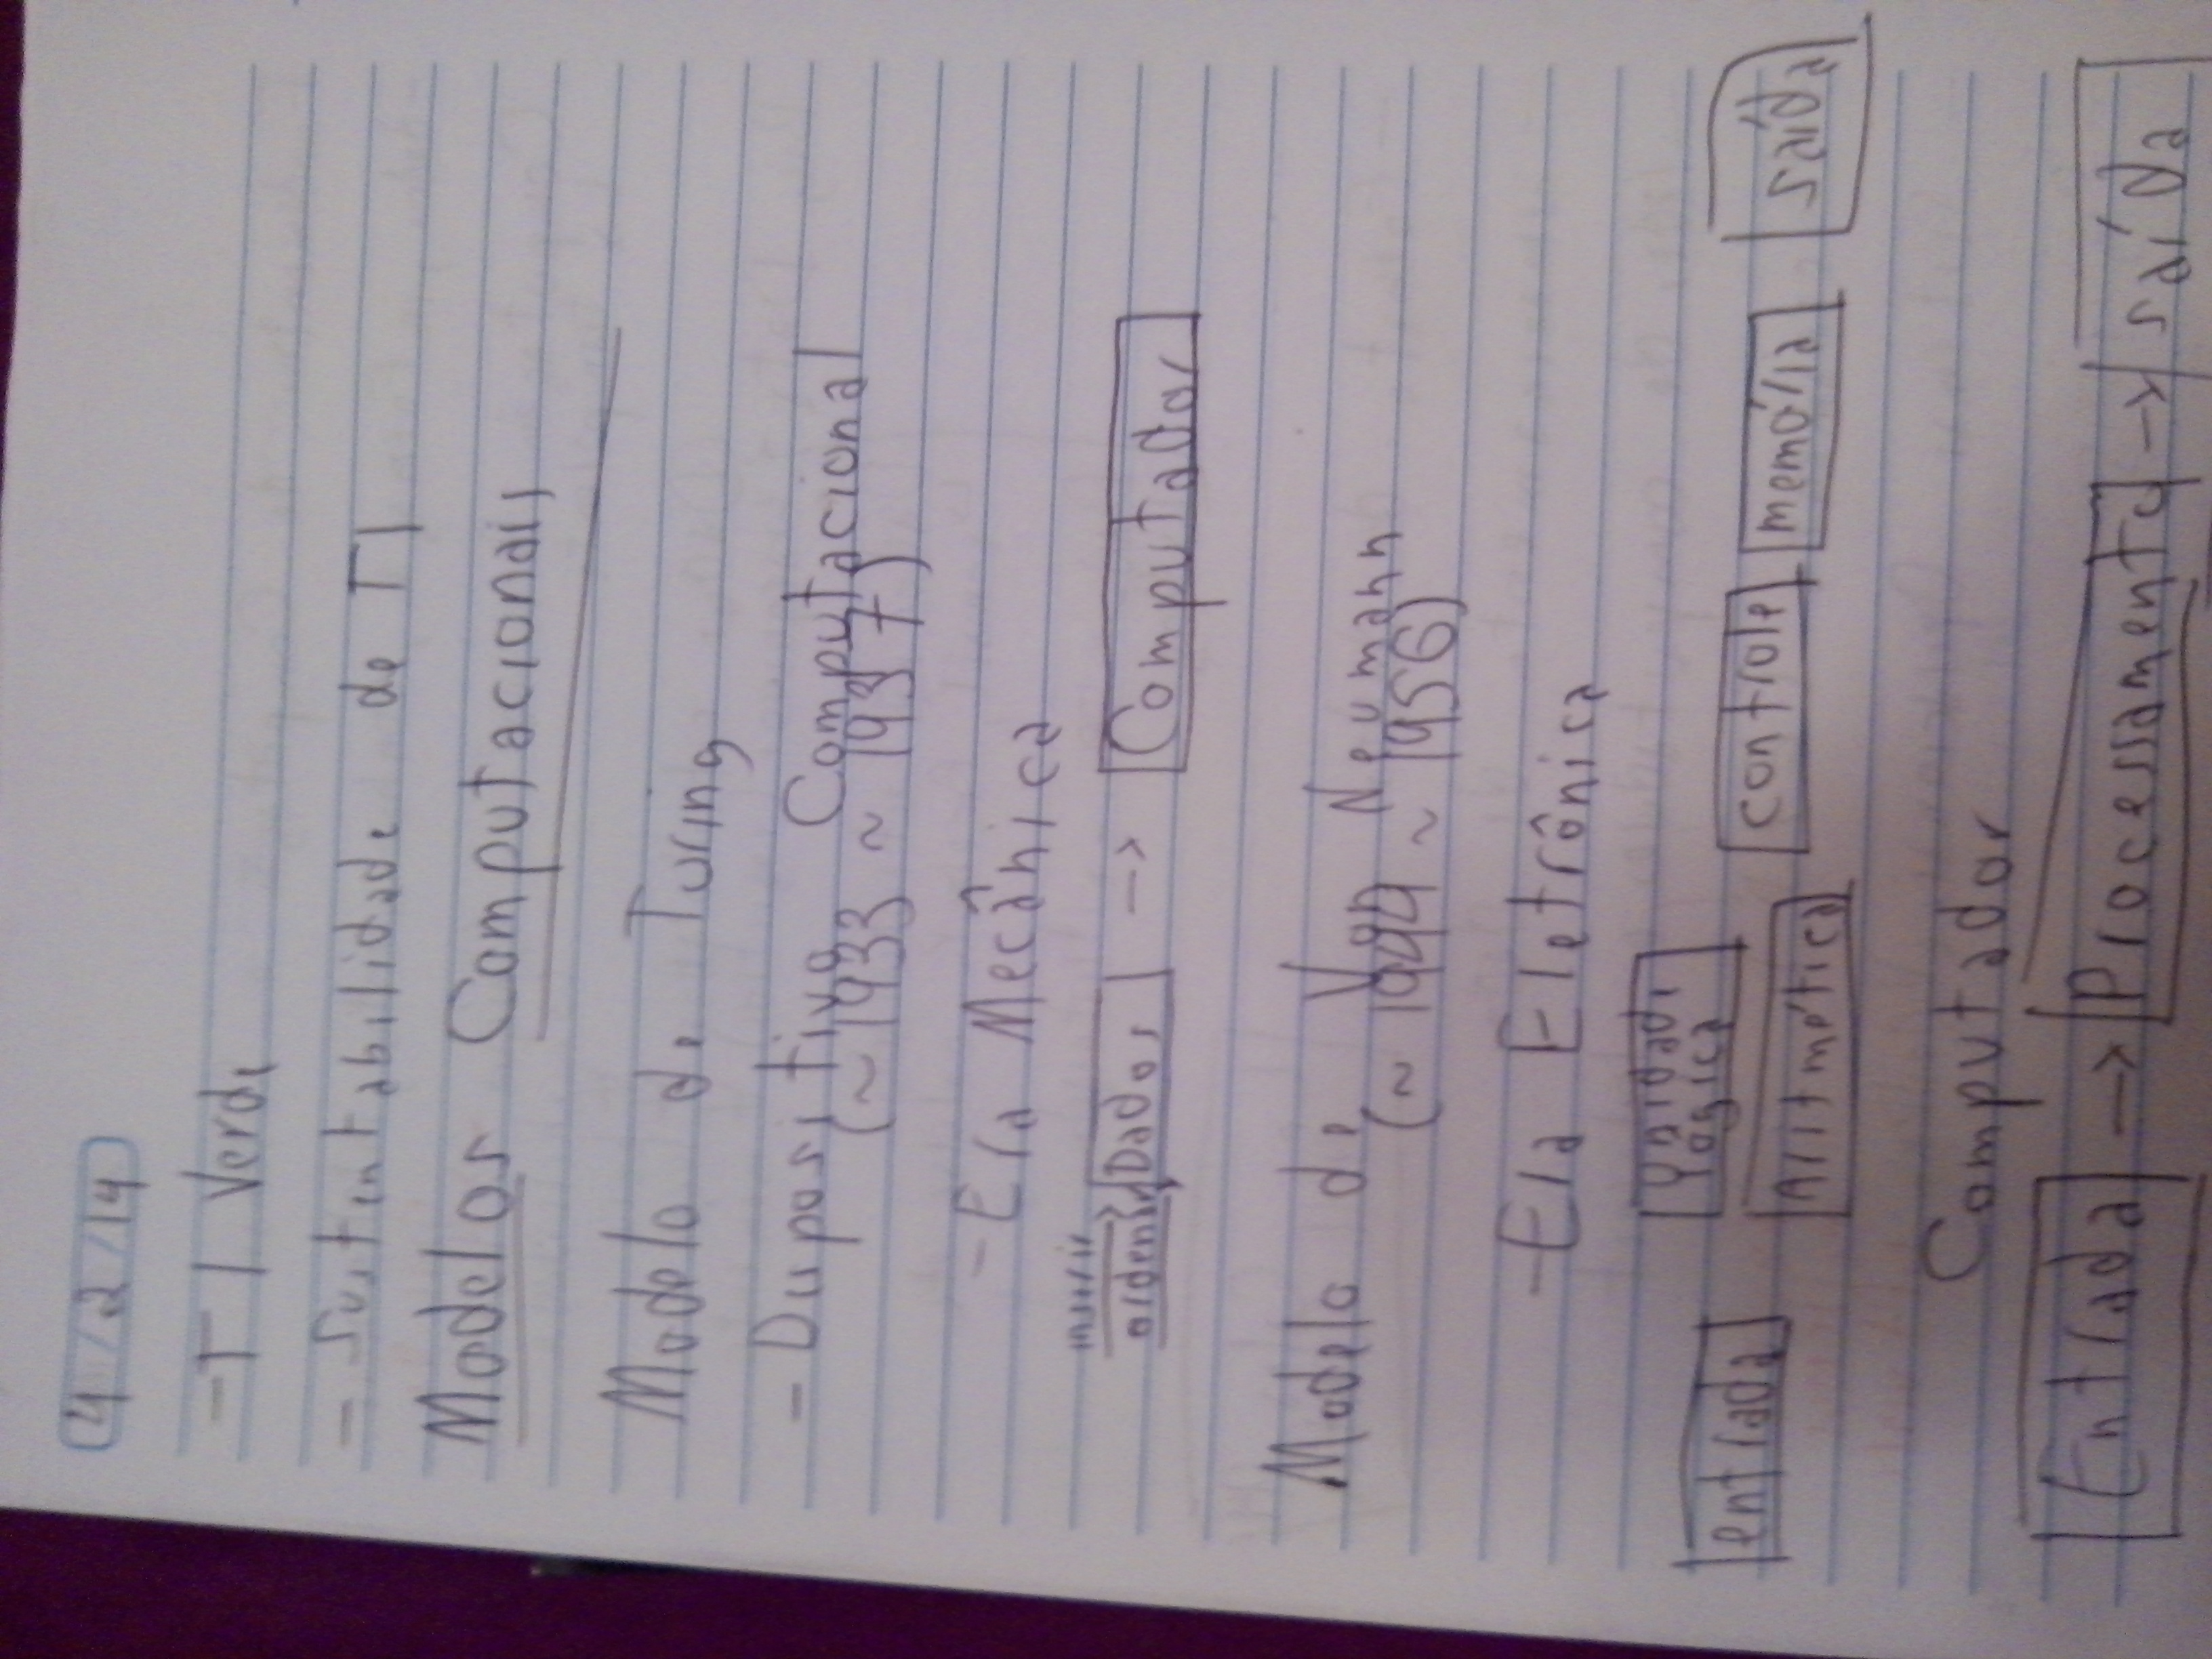 4/2/14
- TI Verde
- Sustentabilidade de TI
Modelos Computacionais
Modelo de Turing
- Dispositivo Computacional
(~ 1933 ~ 1937)
- Era Mecânica
inserir
ordens → Dados → Computador
Modelo de Von Neumann
(~ 1944 ~ 1956)
- Era Eletrônica
entrada Unidade Lógica Aritmética controle memória saída
Computador
Entrada → Processamento → saída